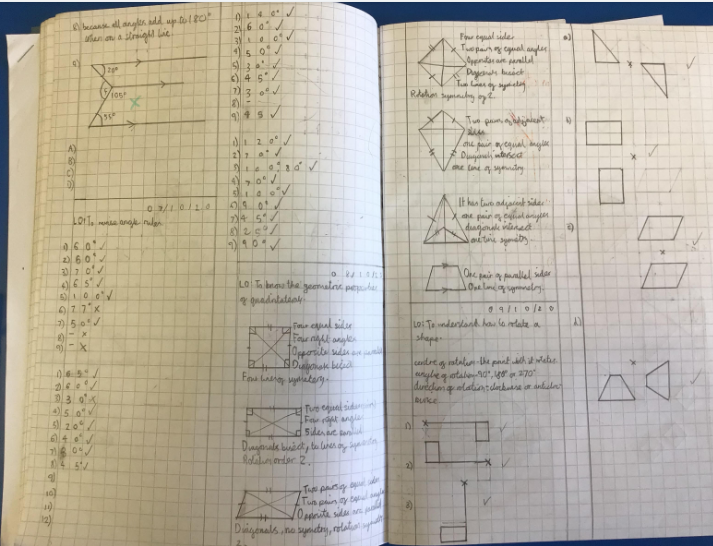 because all angles add up to 180°
when on a straight line
a)
20°
105°
55°
A)
B)
C)
D)
07/10/20
LO: To revise angle rules
1) 60° ✓
2) 50° ✓
3) 70° ✓
4) 65° ✓
5) 100° ✓
6) 77° x
7) 50° ✓
8) - x
9) - x
1) 65° ✓
2) 60° ✓
3) 30° x
4) 50° ✓
5) 20° ✓
6) 40° ✓
8) 45° ✓
9)
10)
11)
12)
2) 60° ✓
4) 50° ✓
5) 30° ✓
6) 45° ✓
7) 30° ✓
8) -
9) 45 ✓
1) 120° ✓
4) 70° ✓
5) 100° ✓
6) 50° ✓
7) 45° ✓
8) 20° ✓
9) 90° ✓
LO: To know the geometric properties
of quadrilaterals
Four equal sides
Four right angles
Opposite sides are parallel
Diagonals bisect
Four lines of symetry.
Two equal sides
Four right angle
Sides are parallel
Diagonals bisect, to lines of symetry
Rotation order 2.
Two pairs of equal sides
Two pairs of equal angles
Opposite sides are parallel
Diagonals, no symetry, rotation symetry
2.
Four equal sides
Two pairs of equal angles
Opposites are parallel
Diagonals bisect
Two lines of symetry
Rotation symetry of 2.
Two pairs of adjacent
sides
one pair of equal angles
Diagonals intersect
one line of symetry
It has two adjacent sides
one pair of equal angles
diagonals intersect
one line symetry.
One pair of parallel sides
One line of symetry.
09/10/20
LO: To understand how to rotate a
shape.
centre of rotation - the point which it rotates
angle of rotation - 90°, 180° or 270°
direction of rotation - clockwise or anticlock-
1)
2)
3)